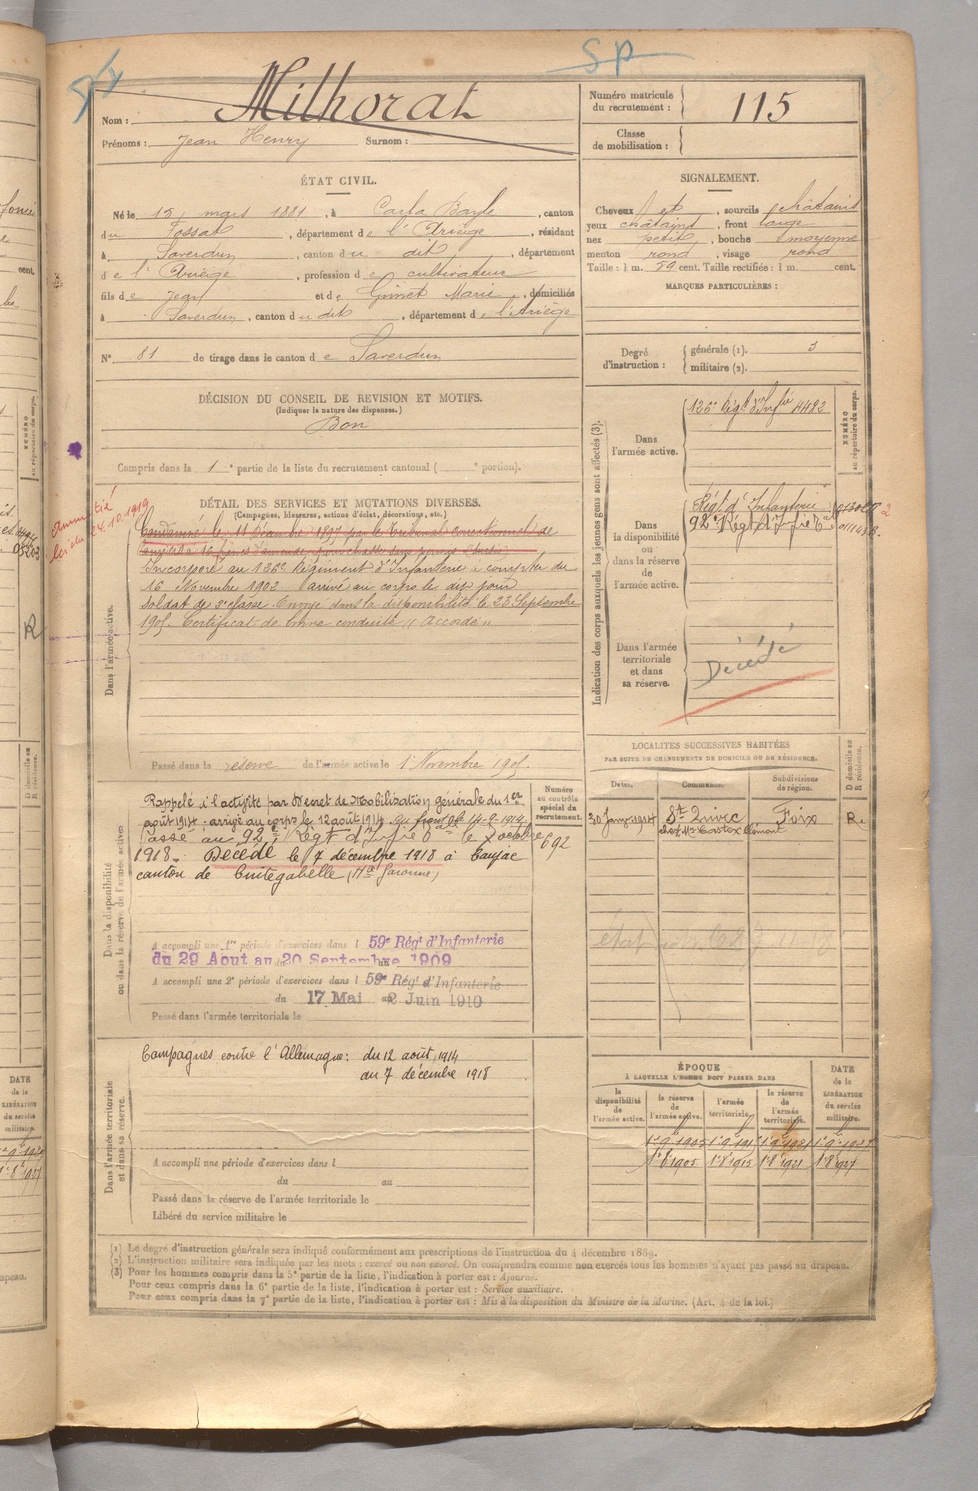 SP
Nom : Milhorat
Prénoms : Jean Henry Surnom :
Numéro matricule du recrutement : 115
Classe de mobilisation :
ÉTAT CIVIL.
Né le 15 mars 1881, à Carla Bayle, canton
du Fossat, département de l'Ariège, résidant
à Saverdun, canton du dit, département
de l'Ariège, profession de cultivateur
fils de Jean et de Gimet Marie, domiciliés
à Saverdun, canton du dit, département de l'Ariège
N° 81 de tirage dans le canton de Saverdun
SIGNALEMENT.
Cheveux et, sourcils châtains
yeux châtains, front large
nez petit, bouche moyenne
menton rond, visage rond
Taille : 1 m. 59 cent. Taille rectifiée : 1 m. cent.
MARQUES PARTICULIÈRES :
Degré d'instruction : générale (1). 3
militaire (2).
DÉCISION DU CONSEIL DE REVISION ET MOTIFS.
(Indiquer la nature des dispenses.)
Bon
Compris dans la 1e partie de la liste du recrutement cantonal ( e portion).
DÉTAIL DES SERVICES ET MUTATIONS DIVERSES.
(Campagnes, blessures, actions d'éclat, décorations, etc.)
amnistié
loi du 24.10.1919
Condamné le 11 Décembre 1897 par le Tribunal Correctionnel de
à 16 francs d'amende pour chasse sans permis
Incorporé au 126e Régiment d'Infanterie à compter du
16 Novembre 1902 arrivé au corps le dit jour
soldat de 2e classe. Envoyé dans la disponibilité le 23 Septembre
1905 Certificat de bonne conduite "Accordé"
Dans l'armée active.
Passé dans la réserve de l'armée active le 1 Novembre 1905.
Indication des corps auxquels les jeunes gens sont affectés (3).
NUMÉRO au répertoire du corps.
Dans l'armée active.
126e Régt d'Infrie 4482
Dans la disponibilité ou dans la réserve de l'armée active.
Régt d'Infanterie
92e Régt d'Infrie
Dans l'armée territoriale et dans sa réserve.
Décédé
Dans la disponibilité
ou dans la réserve de l'armée active
Numéro au contrôle spécial du recrutement.
692
Rappelé à l'activité par Décret de Mobilisation générale du 1er
août 1914 - arrivé au corps le 12 août 1914.
Passé au 92e Régt d'Infrie le 3 octobre
1918. Décédé le 7 décembre 1918 à Caujac
canton de Cintegabelle (Hte Garonne)
A accompli une 1re période d'exercices dans l 59e Régt d'Infanterie
du 29 Aout au 20 Septembre 1909
A accompli une 2e période d'exercices dans l 59e Régt d'Infanterie
du 17 Mai au 2 Juin 1910
Passé dans l'armée territoriale le
LOCALITES SUCCESSIVES HABITÉES
PAR SUITE DE CHANGEMENTS DE DOMICILE OU DE RÉSIDENCE.
Dates. Communes. Subdivisions de région. D domicile ou R résidence.
30 Janv 1914 St Quirc Foix R.
chez Mr Castex Clément
Dans l'armée territoriale
et dans sa réserve.
Campagnes contre l'Allemagne : du 12 août 1914
au 7 décembre 1918
A accompli une période d'exercices dans l
du au
Passé dans la réserve de l'armée territoriale le
Libéré du service militaire le
ÉPOQUE
À LAQUELLE L'HOMME DOIT PASSER DANS
la disponibilité de l'armée active. la réserve de l'armée active. l'armée territoriale. la réserve de l'armée territoriale. DATE de la LIBÉRATION du service militaire.
1er 8 1905 1er 8 1915 1er 8 1921 1er 8 1927
(1) Le degré d'instruction générale sera indiqué conformément aux prescriptions de l'instruction du 4 décembre 1889.
(2) L'instruction militaire sera indiquée par les mots : exercé ou non exercé. On comprendra comme non exercés tous les hommes n'ayant pas passé au drapeau.
(3) Pour les hommes compris dans la 5e partie de la liste, l'indication à porter est : Ajourné.
Pour ceux compris dans la 6e partie de la liste, l'indication à porter est : Service auxiliaire.
Pour ceux compris dans la 7e partie de la liste, l'indication à porter est : Mis à la disposition du Ministre de la Marine. (Art. 4 de la loi.)